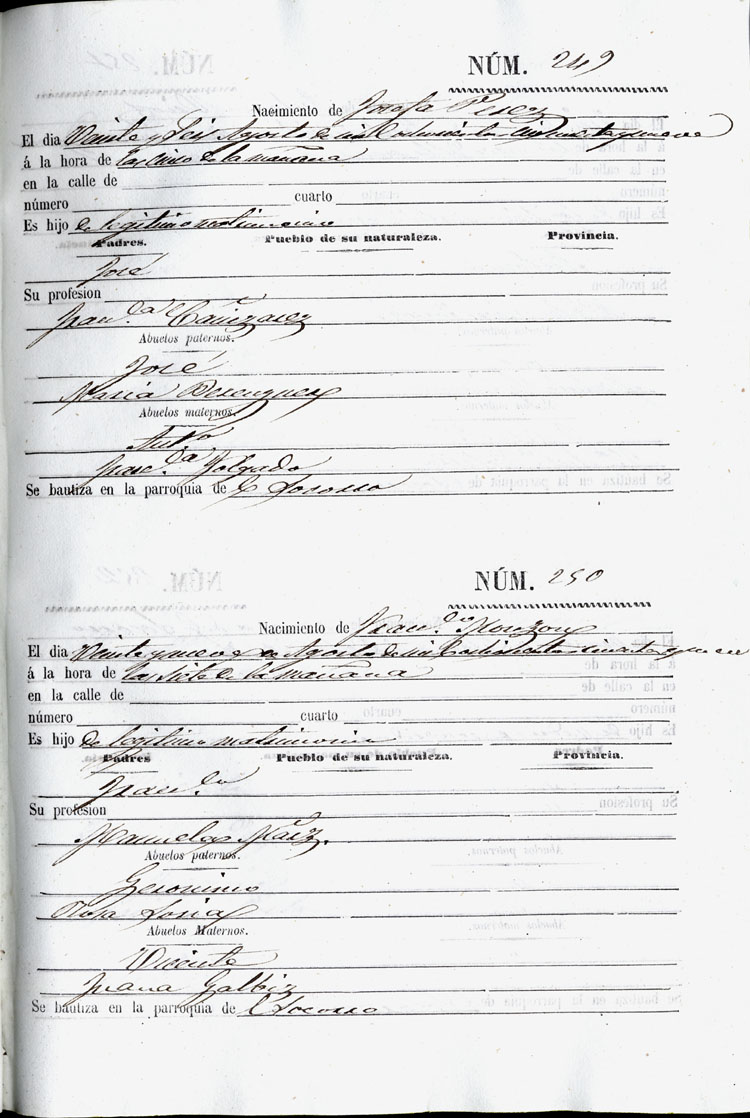 NÚM. 249
Nacimiento de Josefa Perez
El dia Veinte y Seis Agosto de mil Ochocientos cincuenta y nueve
á la hora de las cinco de la mañana
en la calle de
número cuarto
Es hijo de legitimo matrimonio
Padres. Pueblo de su naturaleza. Provincia.
José
Su profesion
Fran.ca Cañizarez
Abuelos paternos.
José
Maria Berenguer
Abuelos maternos.
Ant.o
Fran.ca
Se bautiza en la parroquia de el Socorro
NÚM. 250
Nacimiento de Fran.co Monzon
El dia Veinte y nueve Agosto de mil Ochocientos cincuenta y nueve
á la hora de las siete de la mañana
en la calle de
número cuarto
Es hijo de legitimo matrimonio
Padres Pueblo de su naturaleza. Provincia.
Fran.co
Su profesion
Manuela
Abuelos paternos.
Geronimo
Rosa
Abuelos Maternos.
Vicente
Juana Galbiz
Se bautiza en la parroquia de el Socorro